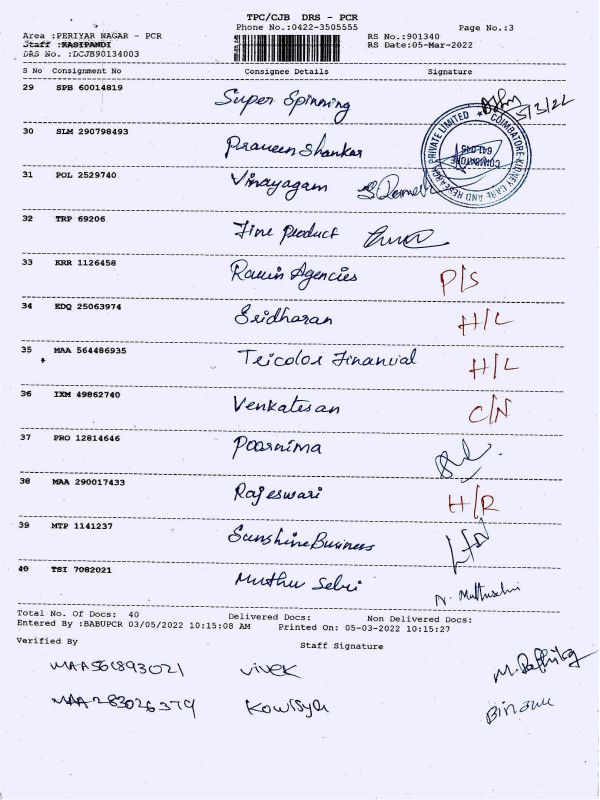 TPC/CJB DRS - PCR
Phone No.:0422-3505555
Page No.:3
Area :PERIYAR NAGAR - PCR
RS No.:901340
Staff :KASIPANDI
RS Date:05-Mar-2022
DRS No. :DCJB90134003
S No Consignment No Consignee Details Signature
29 SPB 60014819 Super Spinning 5/3/22
COIMBATORE KIDNEY CARE AND RESEARCH PRIVATE LIMITED
COIMBATORE
641 045
30 SLM 290798493 Praveen Shankar
31 POL 2529740 Vinayagam
32 TRP 69206 Fine Product
33 KRR 1126458 Agencies P/S
34 EDQ 25063974 Sridharan H/L
35 MAA 564486935 Tricolor Financial H/L
36 IXM 49862740 Venkatesan C/N
37 PRO 12814646 Poornima
38 MAA 290017433 Rajeswari H/R
39 MTP 1141237 Sunshine Business
40 TSI 7082021 Muthu Selvi N. Muthuselvi
Total No. Of Docs: 40 Delivered Docs: Non Delivered Docs:
Entered By :BABUPCR 03/05/2022 10:15:08 AM Printed On: 05-03-2022 10:15:27
Verified By Staff Signature
MAA561893021 Vivek
MAA283026379 Kowsya